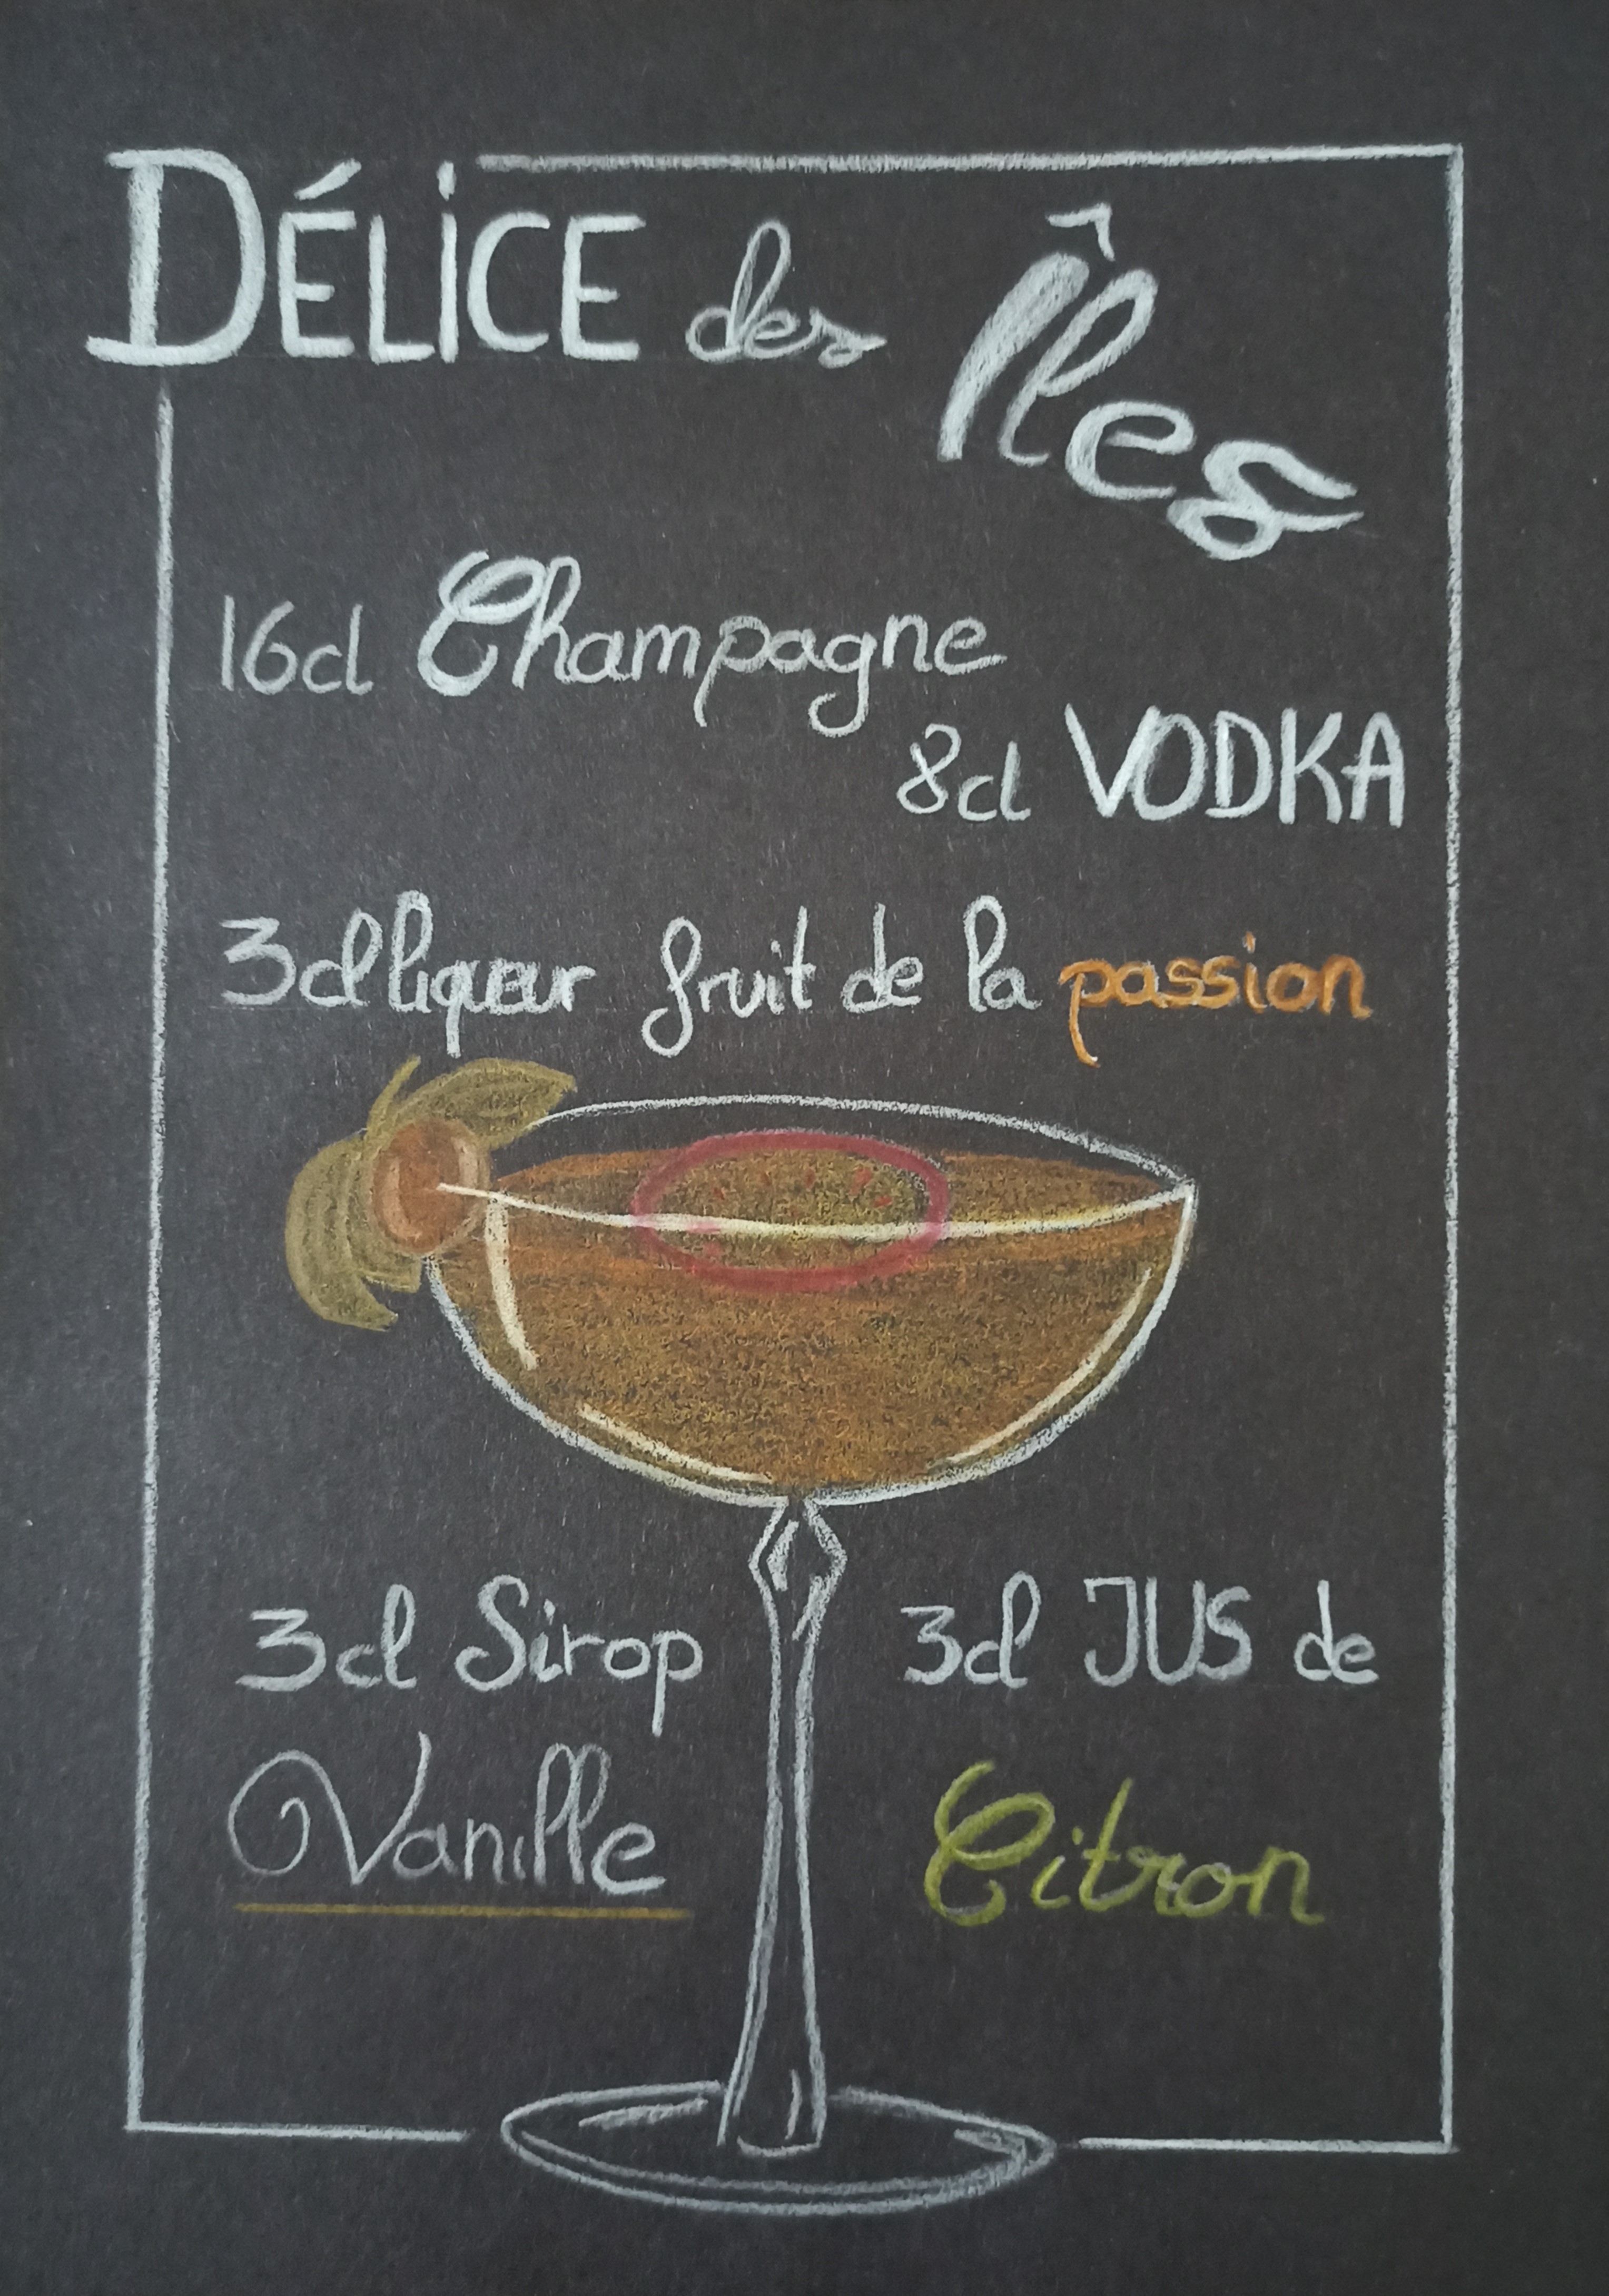 DÉLiCE des Îles
16cl Champagne
8cl VODKA
3cl liqueur fruit de la passion
3cl Sirop
Vanille
3cl JUS de
Citron